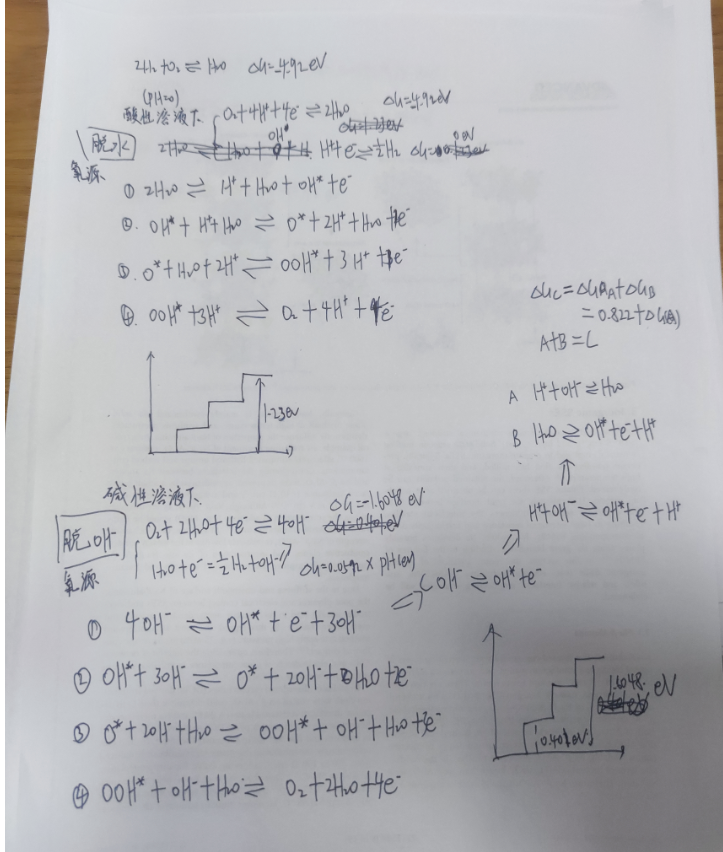 2H₂+O₂ ⇌ H₂O ΔG=-4.92eV
(pH=0)
酸性溶液下 O₂+4H⁺+4e⁻ ⇌ 2H₂O ΔG=-4.92eV
脱水 H⁺+e⁻ ⇌ ½H₂ ΔG= 0eV
氧源
① 2H₂O ⇌ H⁺+H₂O+OH*+e⁻
②. OH*+H⁺+H₂O ⇌ O*+2H⁺+H₂O+e⁻
③. O*+H₂O+2H⁺ ⇌ OOH*+3H⁺+e⁻
④. OOH*+3H⁺ ⇌ O₂+4H⁺+e⁻
1.23eV
ΔG_C=ΔG_A+ΔG_B
=0.822+ΔG
A+B=C
A H⁺+OH⁻ ⇌ H₂O
B H₂O ⇌ OH*+e⁻+H⁺
⇑
H⁺+OH⁻ ⇌ OH*+e⁻+H⁺
碱性溶液下
脱OH⁻ O₂+2H₂O+4e⁻ ⇌ 4OH⁻ ΔG=-1.6048 eV
氧源 H₂O+e⁻=½H₂+OH⁻ ΔG=0.0592×pH(eV)
C OH⁻ ⇌ OH*+e⁻
① 4OH⁻ ⇌ OH*+e⁻+3OH⁻
② OH*+3OH⁻ ⇌ O*+2OH⁻+H₂O+2e⁻
③ O*+2OH⁻+H₂O ⇌ OOH*+OH⁻+H₂O+3e⁻
④ OOH*+OH⁻+H₂O ⇌ O₂+2H₂O+4e⁻
1.6048 eV
0.401eV